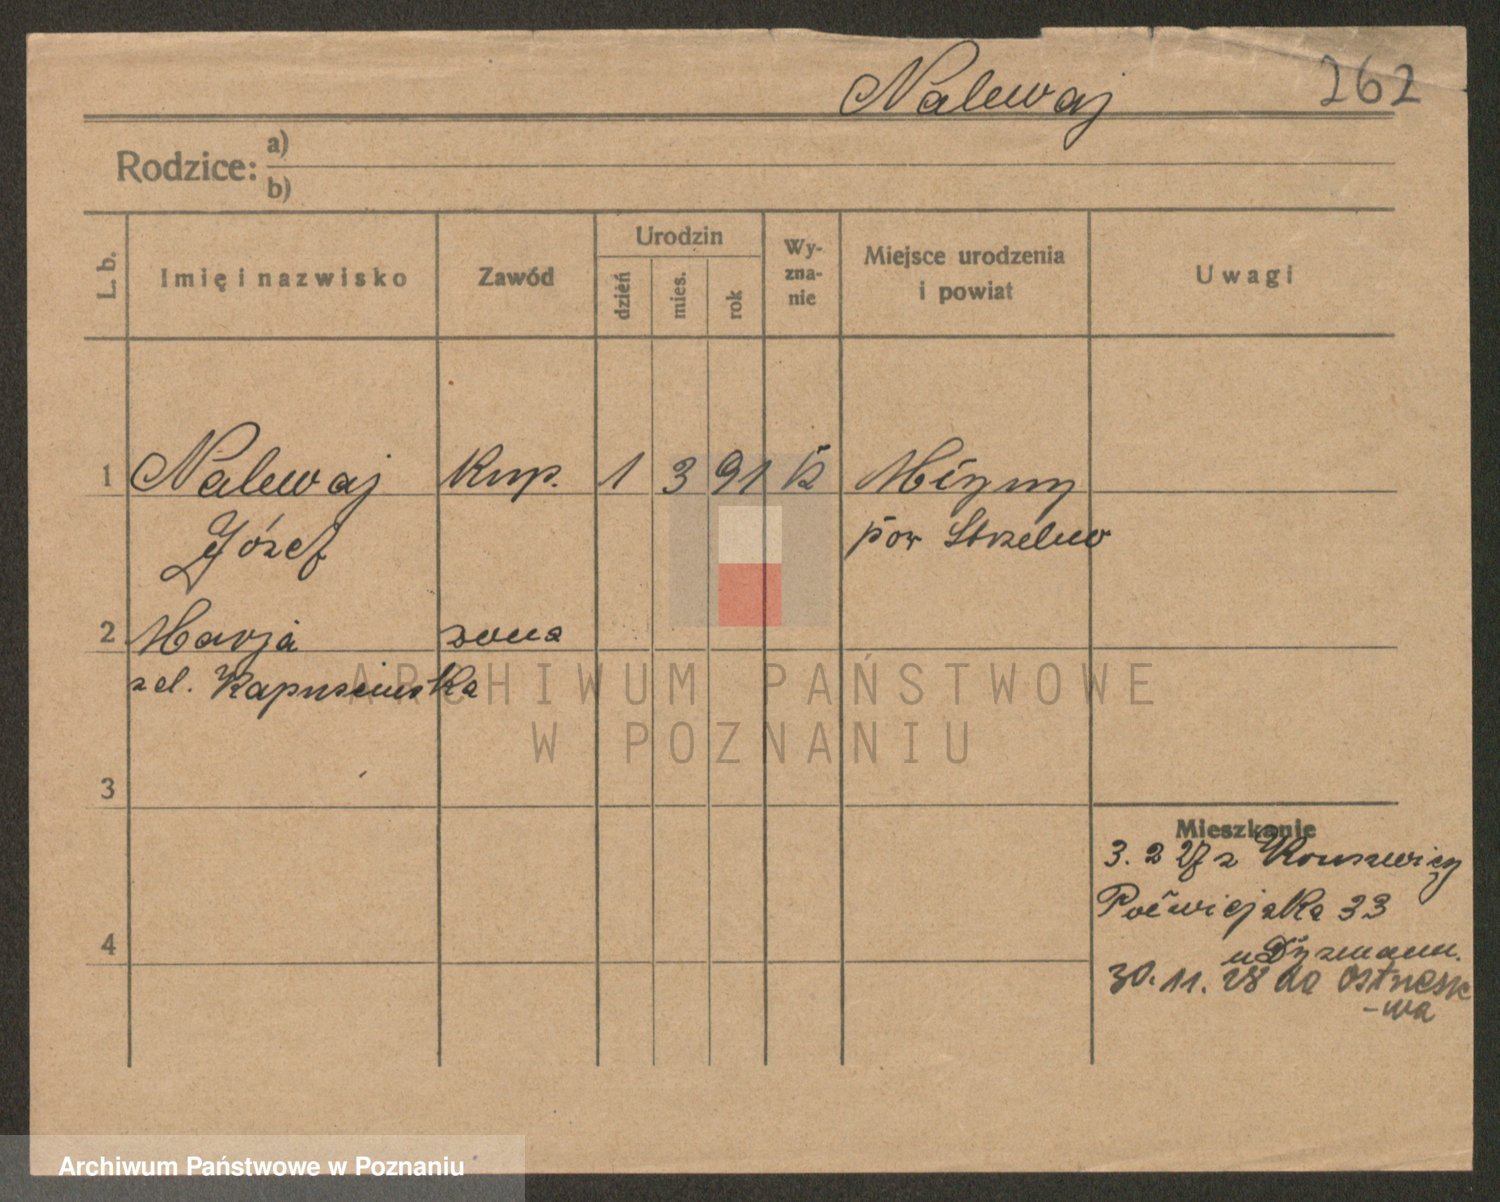 Nalewaj 262
Rodzice: a)
b)
L. b.
Imię i nazwisko
Zawód
Urodzin
dzień
mies.
rok
Wy-
zna-
nie
Miejsce urodzenia
i powiat
Uwagi
1 Nalewaj Kup. 1 3 91 k
Józef pow Strzelno
2 Marja żona
zd. Kapuscinska
3
Mieszkanie
3. 2 27 z
33
4
30. 11. 28 do
ARCHIWUM PAŃSTWOWE
W POZNANIU
Archiwum Państwowe w Poznaniu